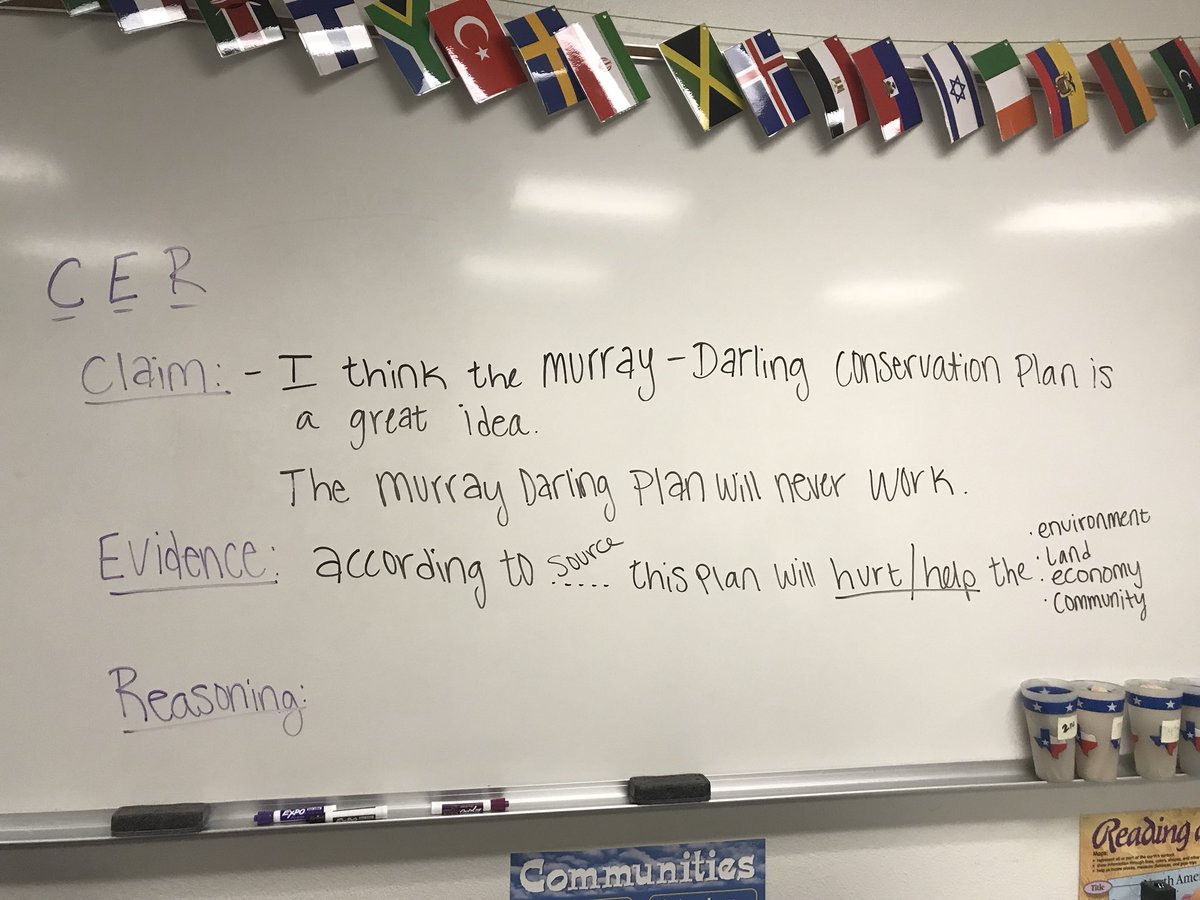 C E R
Claim: - I think the Murray-Darling Conservation Plan is
a great idea.
The Murray Darling Plan will never work.
Evidence: according to source ..... this plan will hurt/help the
· environment
· land
· economy
· community
Reasoning:
EXPO
Communities
Reading
Maps:
Title
North Ame